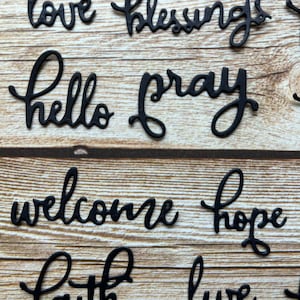 love blessings
hello pray
welcome hope
faith